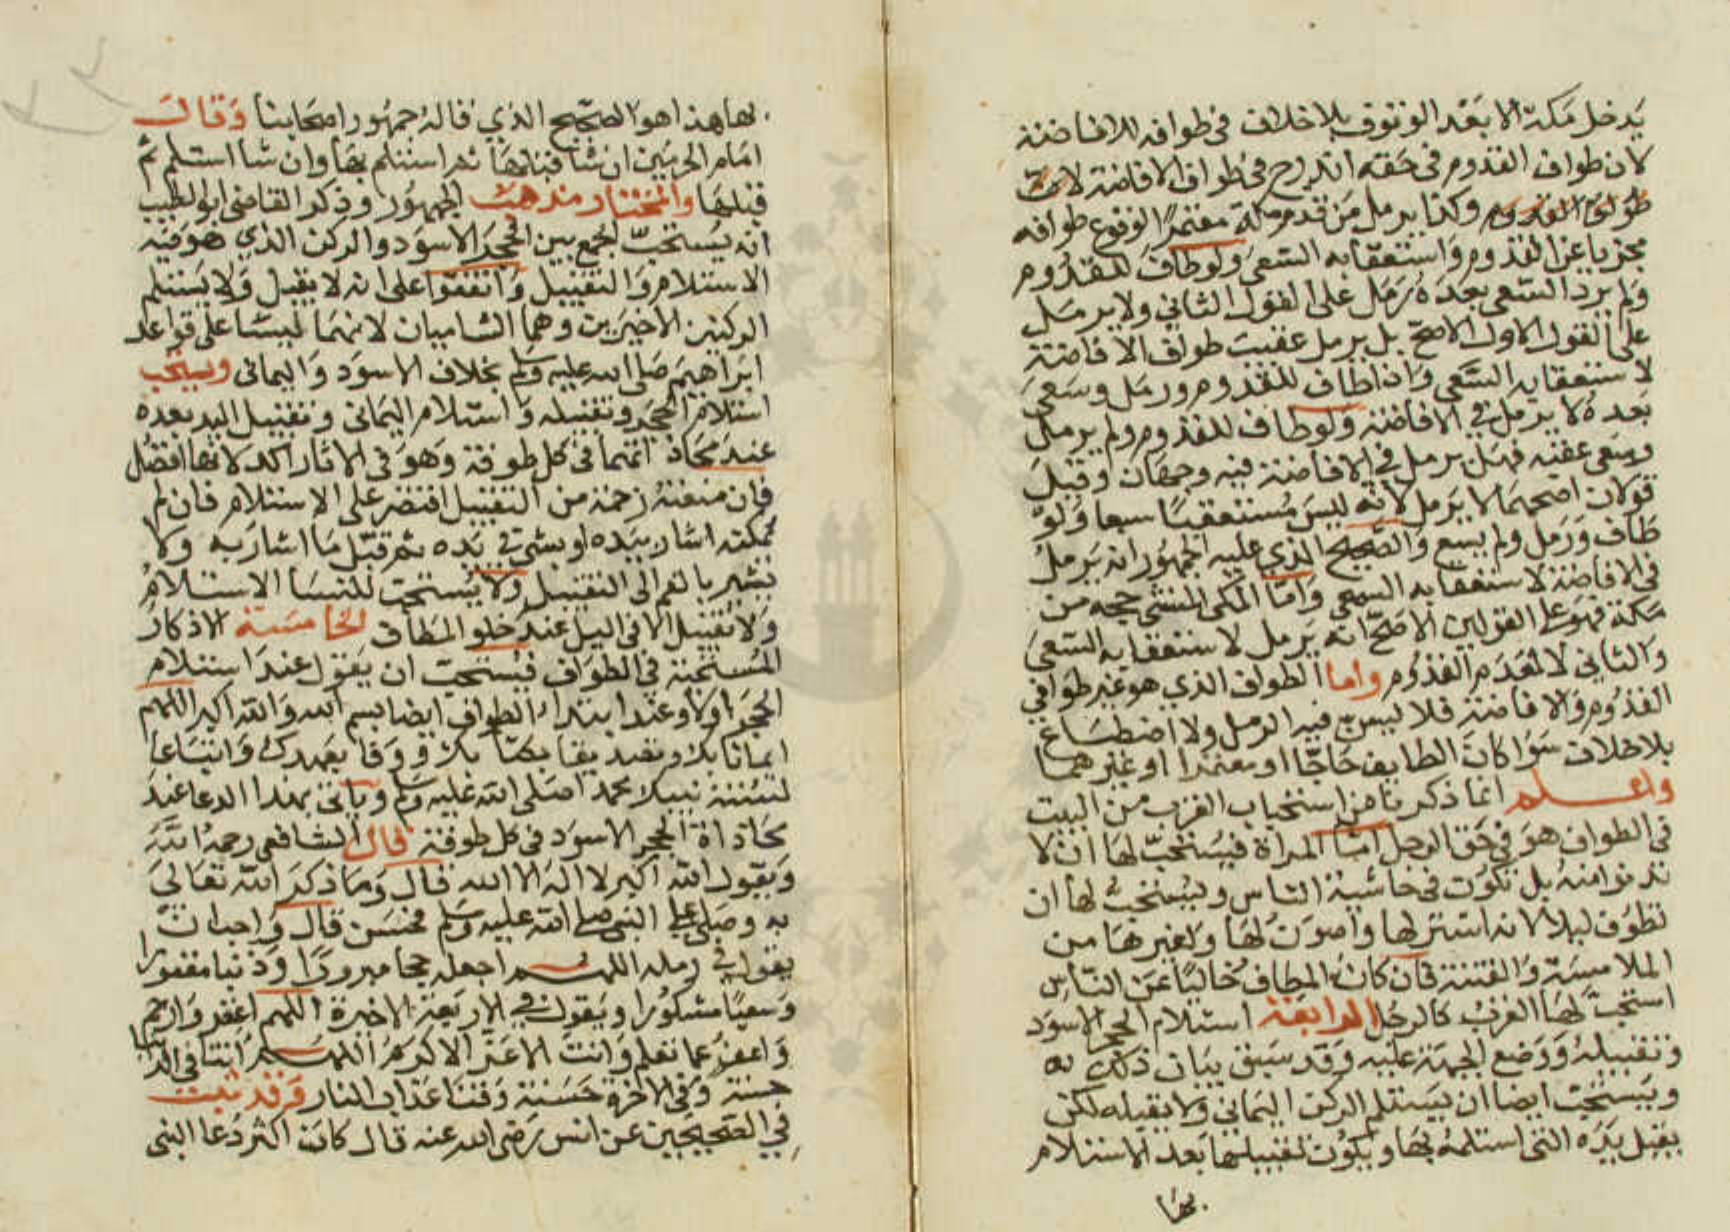 يدخل مكة الا بعد الوقوف بلا خلاف في طوافه للافاضة
لان طواف القدوم في حقه اندرج في طواف الافاضة
طواف القدوم وكذا يرمل من قدم مكة معتمرا لوقوع طوافه
مجزيا عن القدوم واستعقابه السعي ولو طاف للقدوم
ولم يرد السعي بعده رمل على القول الثاني ولا يرمل
على القول الاول الاصح بل يرمل عقيب طواف الافاضة
لاستعقابه السعي واذا طاف للقدوم ورمل وسعى
بعده لا يرمل في الافاضة ولو طاف للقدوم ولم يرمل
وسعى عقبه فهل يرمل في الافاضة فيه وجهان او قيل
قولان اصحهما لا يرمل لانه ليس مستعقبا سعيا ولو
طاف ورمل ولم يسع والصحيح الذي عليه الجمهور انه يرمل
في الافاضة لاستعقابه السعي واما المكي المنشي حجه من
مكة فهو على القولين الاصح انه يرمل لاستعقابه السعي
والثاني لا لعدم القدوم واما الطواف الذي هو غير طوافي
القدوم والافاضة فلا يسن فيه الرمل ولا اضطباع
بلا خلاف سوا كان الطايف حاجا او معتمرا او غيرهما
واعلم انما ذكرنا من استحباب القرب من البيت
في الطواف هو في حق الرجل اما المراة فيستحب لها ان لا
تدنو امنه بل تكون في حاشية الناس ويستحب لها ان
تطوف ليلا لانه استر لها واصون لها ولغيرها من
الملامسة والفتنة فان كان المطاف خاليا عن الناس
استحب لها القرب كالرجل الرابعة استلام الحجر الاسود
وتقبيله ووضع الجبهة عليه وقد سبق بيان ذلك به
ويستحب ايضا ان يستلم الركن اليماني ولا يقبله لكن
يقبل يده التي استلمه بها ويكون تقبيلها بعد الاستلام
بها
بها هذا هو الصحيح الذي قاله جمهور اصحابنا وقال
امام الحرمين ان شا قبلها ثم استلم بها وان شا استلم ثم
قبلها والمختار مذهب الجمهور وذكر القاضي ابو الطيب
انه يستحب الجمع بين الحجر الاسود والركن الذي هو فيه
الاستلام والتقبيل واتفقوا على انه لا يقبل ولا يستلم
الركنين الاخيرين وهما الشاميان لانهما ليسا على قواعد
ابراهيم صلى الله عليه وسلم بخلاف الاسود واليماني ويستحب
استلام الحجر وتقبيله واستلام اليماني وتقبيل اليد بعده
عند محاذاتهما في كل طوفة وهو في الاثار اكد لانها افضل
فان منعته زحمة من التقبيل اقتصر على الاستلام فان لم
يمكنه اشار بيده او بشي في يده ثم قبل ما اشار به ولا
يشير بالفم الى التقبيل ولا يستحب للنسا الاستلام
ولا تقبيل الا في الليل عند خلو المطاف الخامسة الاذكار
المستحبة في الطواف فيستحب ان يقول عند استلام
الحجر اولا وعند ابتداء الطواف ايضا بسم الله والله اكبر اللهم
ايمانا بك وتصديقا بكتابك ووفا بعهدك واتباعا
لسنة نبيك محمد صلى الله عليه وسلم ويأتي بهذا الدعا عند
محاذاة الحجر الاسود في كل طوفة قال الشافعي رحمه الله
ويقول الله اكبر لا اله الا الله قال وما ذكر الله تعالى
به وصلى على النبي صلى الله عليه وسلم فحسن قال واحب ان
يقول في رمله اللهم اجعله حجا مبرورا وذنبا مغفورا
وسعيا مشكورا ويقول في الاربعة الاخيرة اللهم اغفر وارحم
واعف عما تعلم وانت الاعز الاكرم اللهم اتنا في الدنيا
حسنة وفي الاخرة حسنة وقنا عذاب النار وقد ثبت
في الصحيحين عن انس رضي الله عنه قال كان اكثر دعا النبي